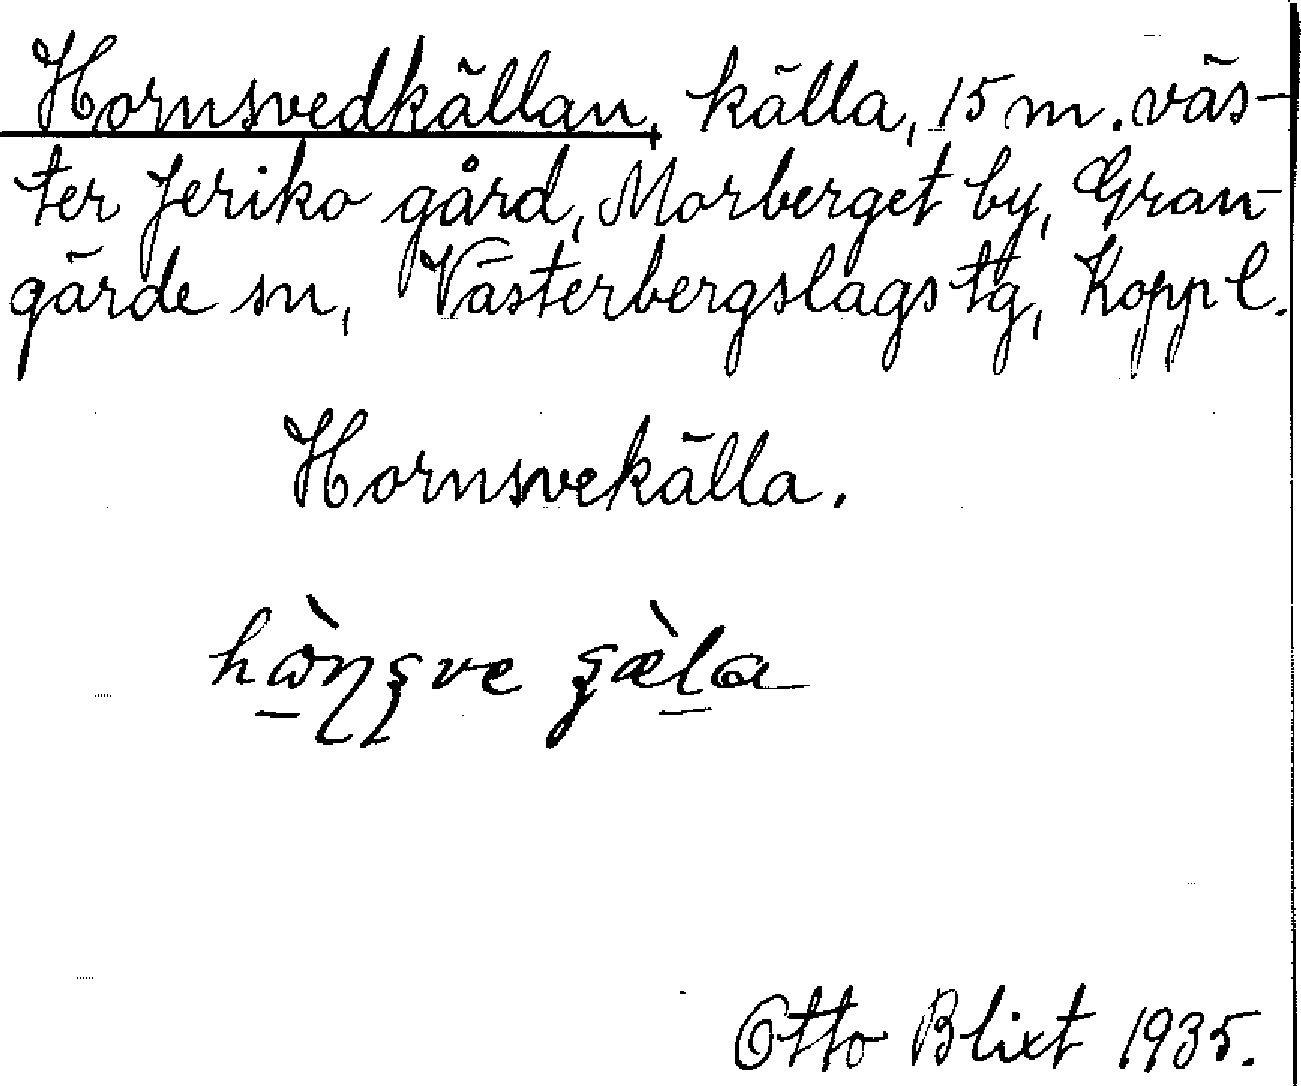 Hornsvedkällan, källa, 15 m. väs-
ter Jeriko gård, Morberget by, Gran-
gärde sn, Västerbergslags tg, Kopp l.
Hornsvekälla.
Otto Blixt 1935.